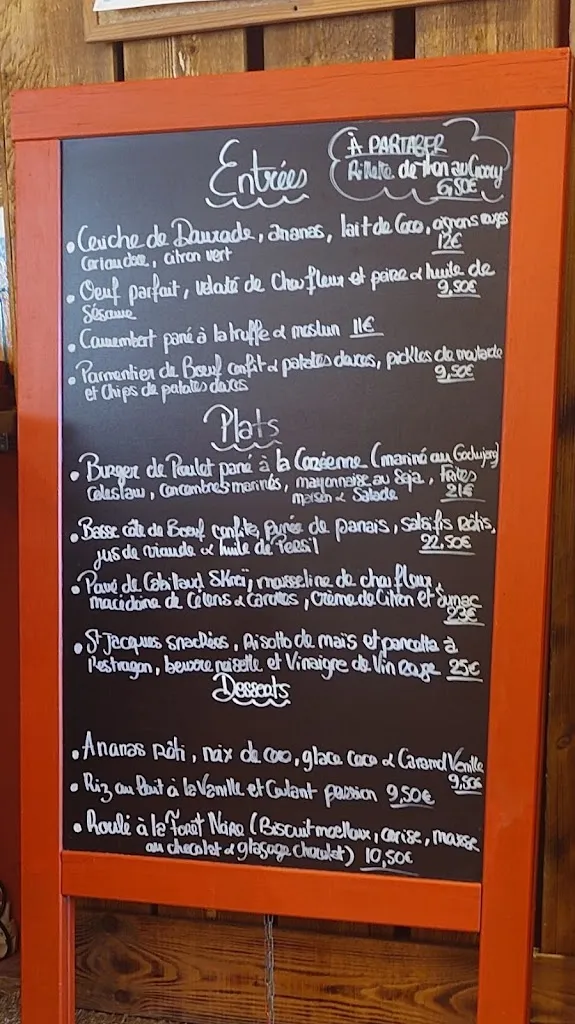 À PARTAGER
Rillette de thon au Curry
6,50€
Entrées
• Ceviche de Daurade, ananas, lait de Coco, oignons rouges
Coriandre, citron vert 12€
• Oeuf parfait, velouté de Chou fleur et poire & huile de
Sésame 9,50€
• Camembert pané à la truffe & mesclun 11€
• Parmentier de Boeuf confit & patates douces, pickles de moutarde
et Chips de patates douces 9,50€
Plats
• Burger de Poulet pané à la Coréenne (mariné au Gochujang)
Coleslaw, concombres marinés, mayonnaise au Soja, Frites
maison & Salade 21€
• Basse côte de Boeuf confite, purée de panais, salsifis rôtis,
jus de viande & huile de Persil 22,50€
• Pavé de Cabillaud Skreï, mousseline de chou fleur,
macédoine de Céleris & Carottes, Crème de Citron et Sumac
23€
• St Jacques snackées, Risotto de maïs et pancetta à
l'estragon, beurre noisette et Vinaigre de Vin rouge 25€
Desserts
• Ananas rôti, noix de coco, glace coco & Caramel Vanille
9,50€
• Riz au lait à la Vanille et Coulant passion 9,50€
• Roulé à la Forêt Noire (Biscuit moelleux, cerise, mousse
au chocolat & glaçage chocolat) 10,50€